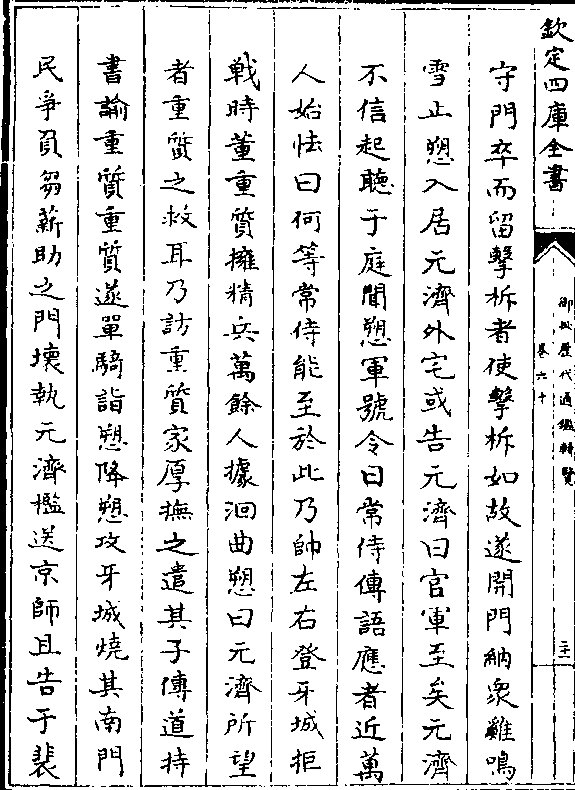 欽定四庫全書
御批歷代通鑑輯覽
卷六十
三十一
守門卒而留擊柝者使擊柝如故遂開門納衆雞鳴
雪止愬入居元濟外宅或告元濟曰官軍至矣元濟
不信起聽于庭聞愬軍號令曰常侍傳語應者近萬
人始怯曰何等常侍能至於此乃帥左右登牙城拒
戰時董重質擁精兵萬餘人據洄曲愬曰元濟所望
者重質之救耳乃訪重質家厚撫之遣其子傳道持
書諭重質重質遂單騎詣愬降愬攻牙城燒其南門
民爭負芻薪助之門壞執元濟檻送京師且告于裴